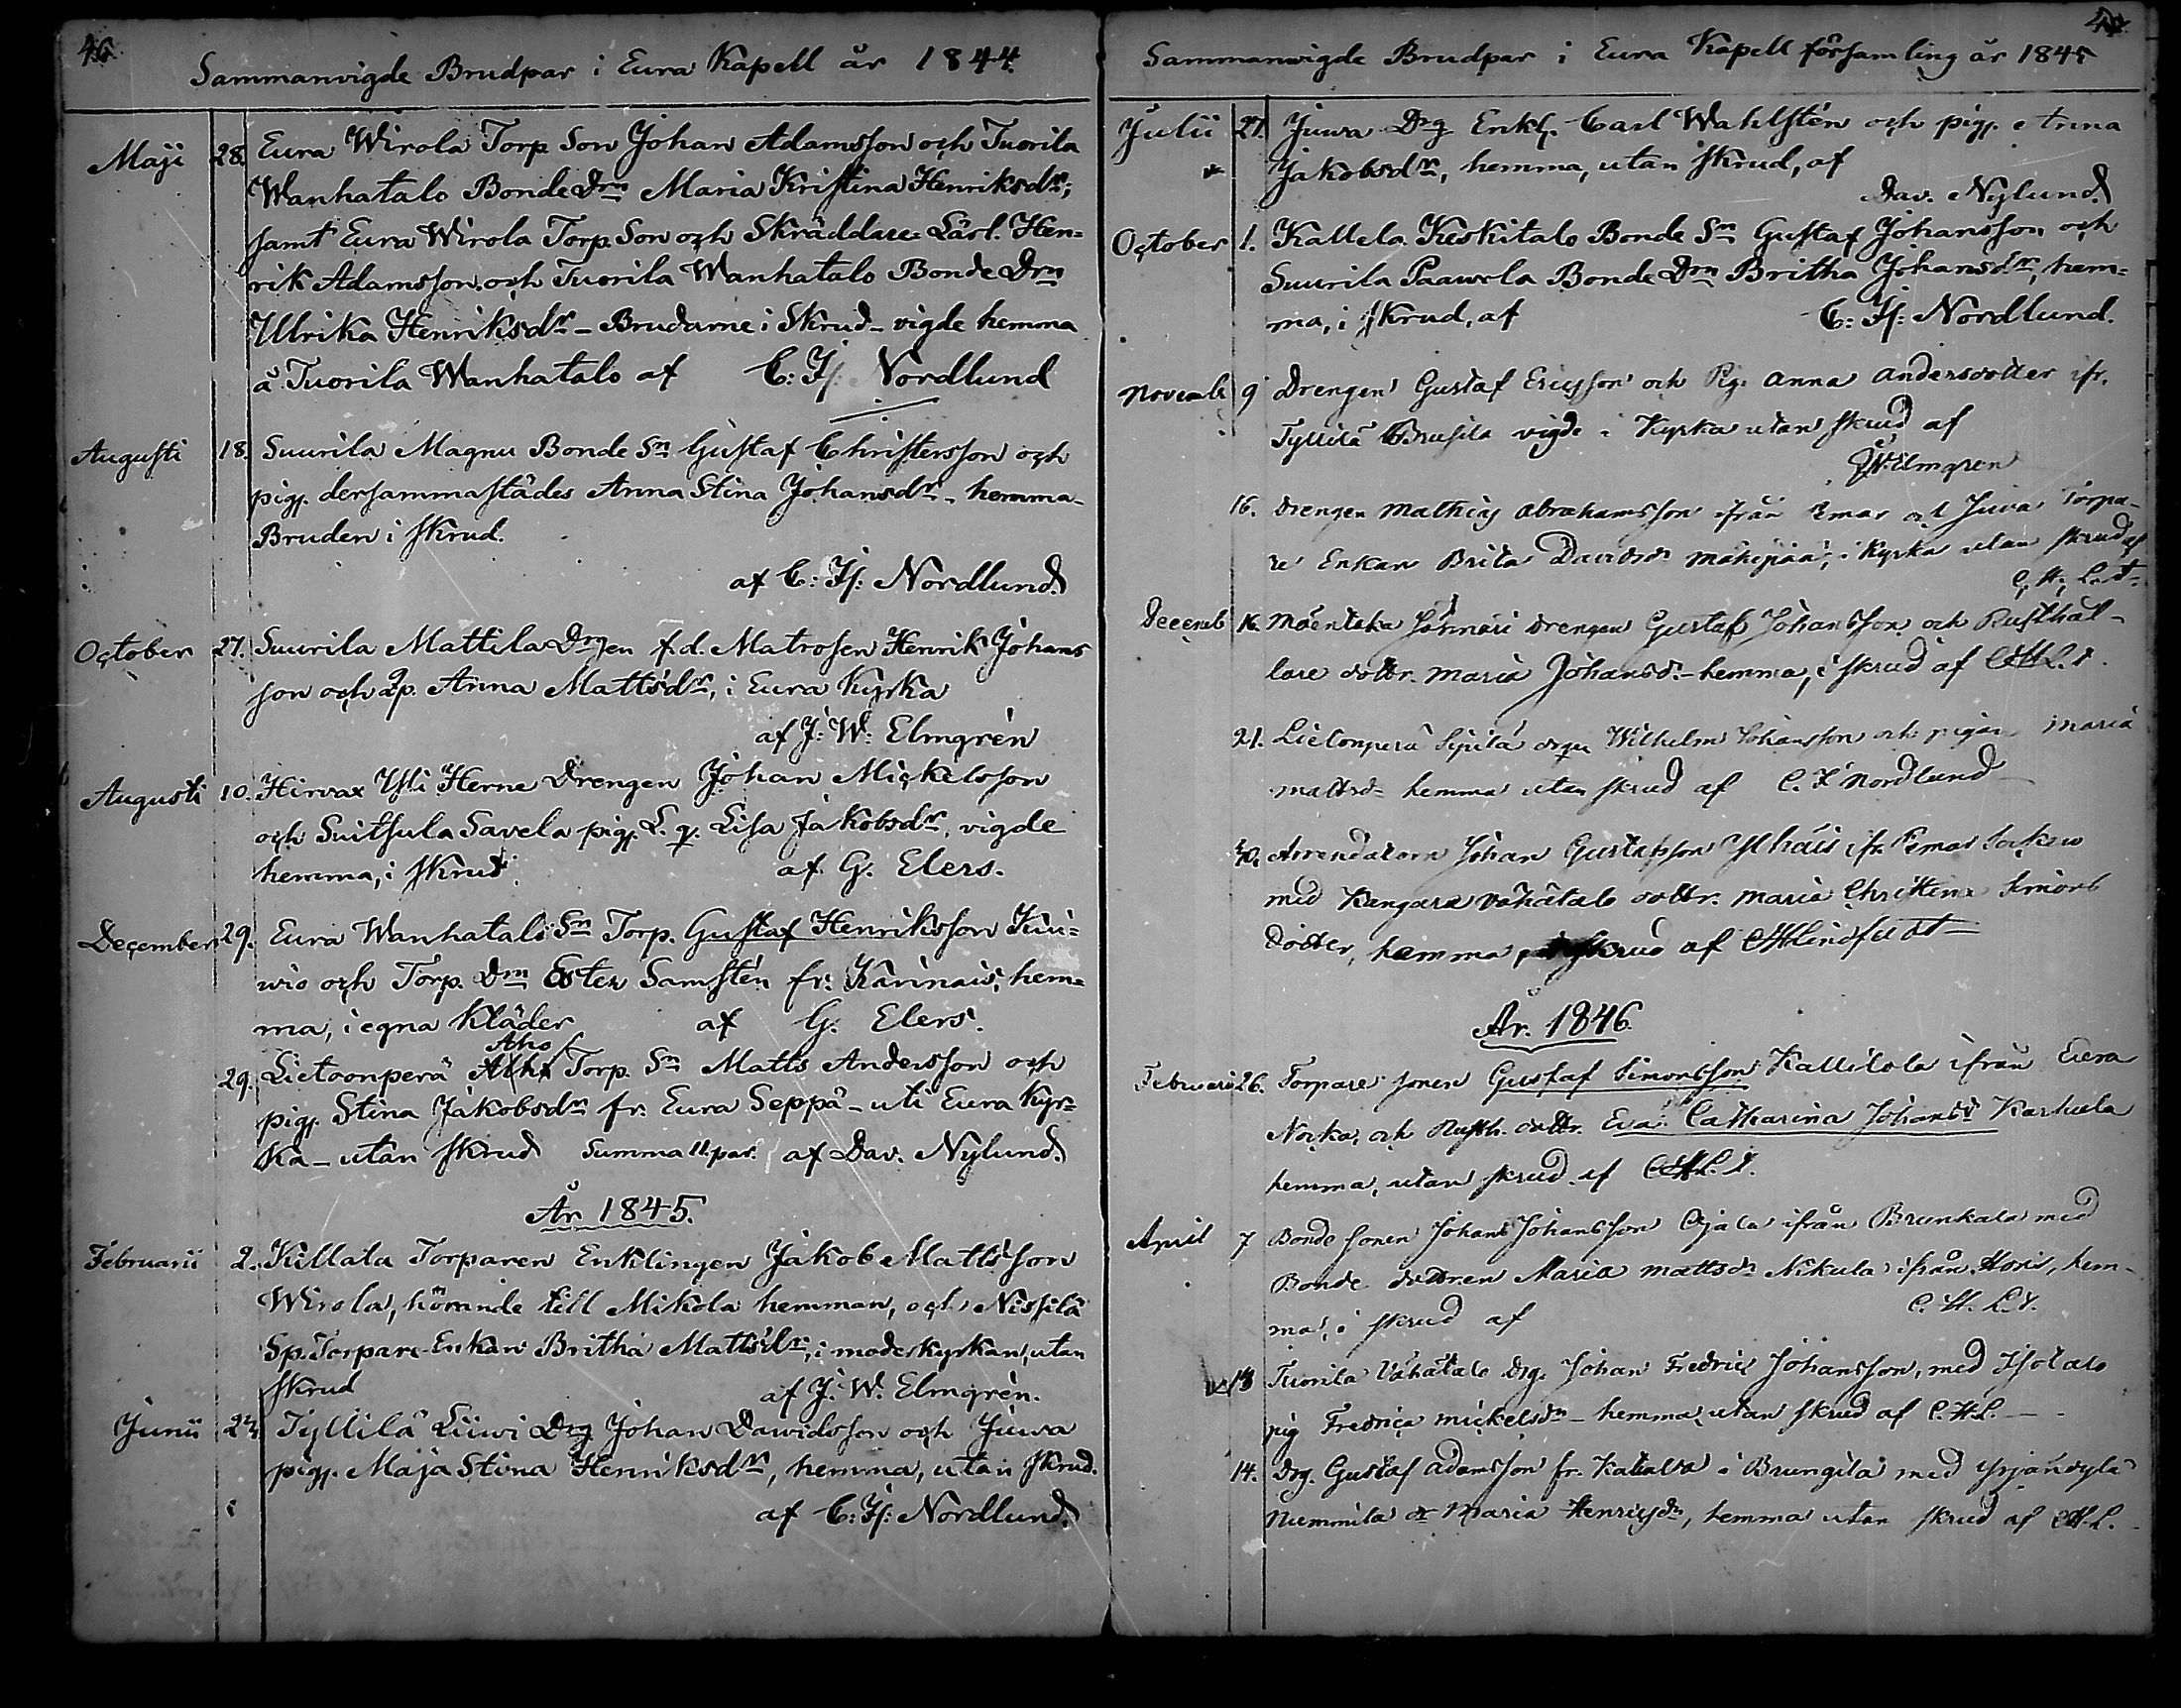 46.
Sammanvigde Brudpar i Eura Kapell år 1844.
Maji 28. Eura Wirola Torp Son Johan Adamsson och Tuorila
Wanhatalo Bonde Drn Maria Kristina Henriksdr;
samt Eura Wirola Torp. Son och Skräddare-Lärl. Hen-
rik Adamsson, och Tuorila Wanhatalo Bonde Drn
Ulrika Henriksdr - Brudarne i Skrud - vigde hemma
å Tuorila Wanhatalo af C: Fr: Nordlund
Augusti 18. Suurila Magnu Bonde Sn Gustaf Christersson och
pig. dersammastädes Anna Stina Johansdr - hemma -
Bruden i skrud.
af C: Fr: Nordlund.
October 27. Suurila Mattila Drgen f.d. Matrosen Henrik Johans
son och qp. Anna Mattsdr, i Eura Kyrka
af J: W: Elmgrén
Augusti 10. Hirvax Yli Herne Drengen Johan Mickelsson
och Suitsula Savela pig. L. q. Lisa Jakobsdr, vigde
hemma, i skrud af G. Elers.
December 29. Eura Wanhatalo Sn Torp. Gustaf Henriksson Kui-
wio och Torp. Drn Ester Samstén fr: Karinais, hem-
ma, i egna Kläder af G. Elers.
Aho
29. Lietoonperä Torp. Sn Matts Andersson och
pig. Stina Jakobsdr fr. Eura Seppä - uti Eura Kyr-
ka - utan skrud Summa 11 par. af Dav. Nylund.
År 1845.
Februarii 2. Killala Torparen Enklingen Jakob Mattsson
Wirola, hörande till Mikola hemman, och Nissilä
Sp. Torpare-Enkan Britha Mattsdr, i moderkyrkan, utan
skrud af J. W. Elmgrén.
Junii 24. Tyllilä Liiwi Drg Johan Davidsson och Juwa
pig. Maja Stina Henriksdr, hemma, utan skrud.
af C: Fr: Nordlund.
Sammanvigde Brudpar i Eura Kapell församling år 1845
Julii 27. Juwa Drg Enkl. Carl Wahlstén och pig. Anna
Jakobsdr, hemma, utan skrud, af
Dav. Nylund.
October 1. Kallela Keskitalo Bonde Sn Gustaf Johansson och
Suurila Paawola Bonde Drn Britha Johansdr, hem-
ma, i skrud, af C: Fr: Nordlund.
Novemb 9 Drengen Gustaf Ericsson och Pig. Anna Andersdotter ifr.
Tyllilä Brusila vigde i Kyrka utan skrud af
JW Elmgren
16. Drengen Mathias Abrahamsson ifrån och Juva Torpa-
re Enkan Brita Davidsdr Mäkipää, i Kyrka utan skrud af
C. H. L-dt
Decemb 16. Mäentaka drengen Gustaf Johansson och Rusthål-
lare dottr. Maria Johansd. - hemma, i skrud af CHL-t.
21. Lietonperä Sipilä drgn Wilhelm Johansson och pigan Maria
Mattsd- hemma utan skrud af C. F Nordlund
30. Arrendatorn Johan Gustafsson ifr. Pemar Socken
med Kangare Vähätalo dottr. Maria Christina Simons
dotter, hemma, skrud af CHLindstedt
År. 1846.
Februari 26. Torpare sonen Gustaf Simonsson Kallilola ifrån Eura
Nocka, och Rusth. dottr. Eva Catharina Johansd Karhula
hemma, utan skrud. af CHL-t.
April 7 Bonde sonen Johan Johansson Ojala ifrån Brunkala med
Bonde dottren Maria Mattsdr Nikula ifrån, hem-
ma, i skrud af C. H. L-t.
13 Tuorila Vähätalo drg. Johan Fredric Johansson, med Isotalo
pig Fredrica Mickelsdr - hemma, utan skrud af C.H.L. -
14. Drg. Gustaf Adamsson fr. Katava i Brungila med Yrjänkylä
Nummila Maria Henricsdr, hemma utan skrud af CH.L.